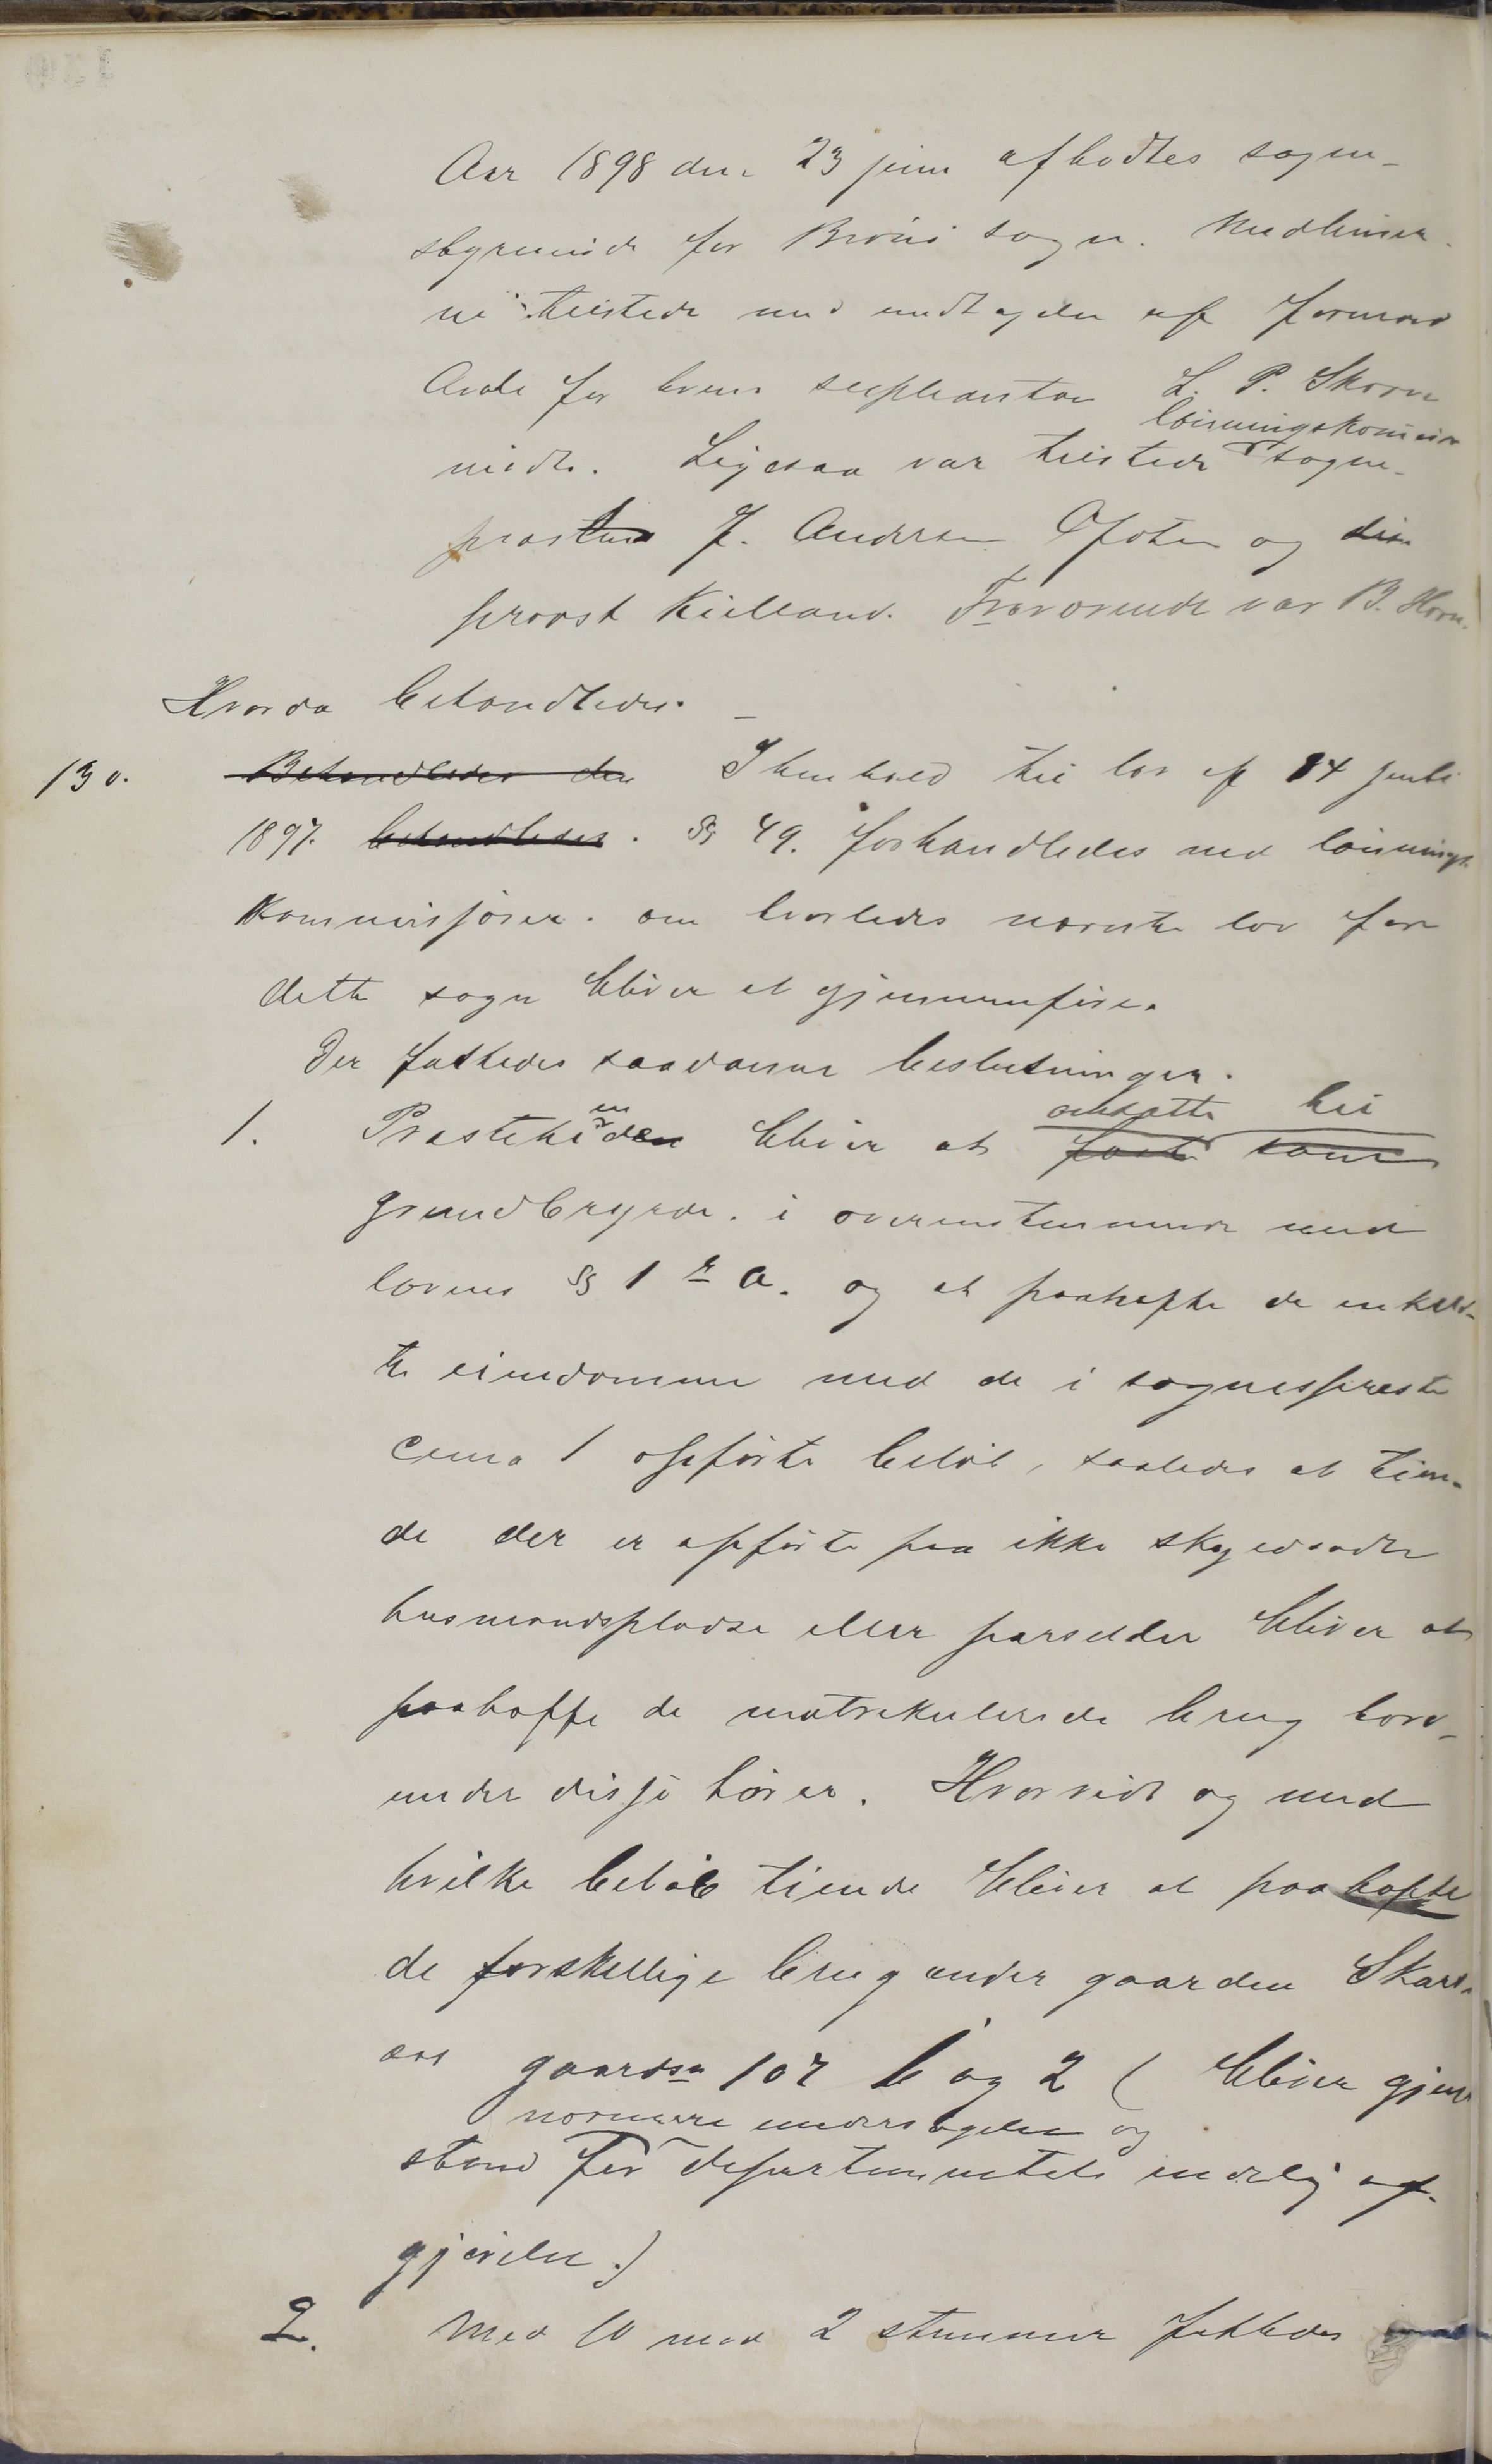 Aar 1898 den 23 juni afholdtes sogne-
styremöde for Brönö sogn. Medlemmer-
ne tilstede med undtagelse af formand
Aade for hvem supleanten L. P. Skorn
lönningskommis
mödte. Ligesaa var tilstede sogne-
prosten J. Andersen Ofoten og den
provst Kielland. Fraværende var B. Horn.
Hvorda behandledes.
130. Behandledes den I henhold til lov af 14 juli
1897. behandledes. § 49. forhandledes med lönnings
kommissjonen. om hvorledes nævnte lov for
dette sogn bliver at gjennemføre.
Der fattedes saadanne beslutninger.
omsatte til
1. Prestetienden bliver at fast som
grundbyrde. i overenstemmende med
lovens § 1 a. og at paahefte de enkel-
te eiendomme med de i sognepreste
cema 1 opførte beløb, saaledes at tien-
de der er opførte paa ikke skyldsadte
husmandspladse eller parseller bliver at
paahefte de matrikulerede brug hvor-
under disse hører. Hvorvidt og med
hvilke beløb tiende bliver at paahefte
de forskellige brug under gaarden Skar-
aas gaardsn 107 b og 2 ( bliver gjen
nærmere undersøgelse og
stand for departementets endelig af-
gjørelse.)
2. Med 10 mod 2 stemmer fattedes